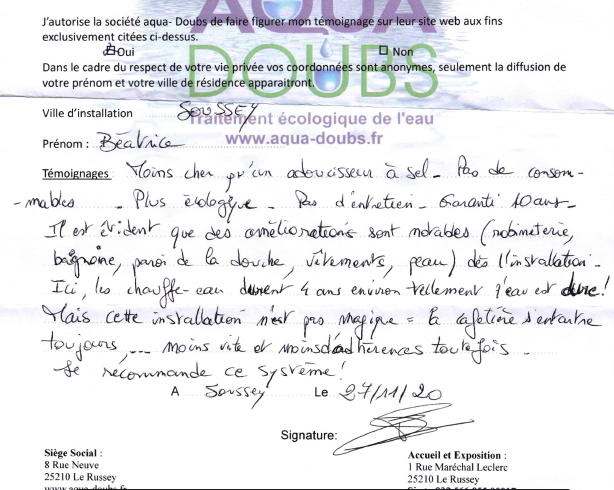 AQUA
DOUBS
J'autorise la société aqua- Doubs de faire figurer mon témoignage sur leur site web aux fins
exclusivement citées ci-dessus.
Oui Non
Dans le cadre du respect de votre vie privée vos coordonnées sont anonymes, seulement la diffusion de
votre prénom et votre ville de résidence apparaitront.
Ville d'installation SOUSSEY
Traitement écologique de l'eau
www.aqua-doubs.fr
Prénom : Béatrice
Témoignages Moins cher qu'un adoucisseur à sel - Pas de consom-
-mables - Plus écologique - Pas d'entretien - Garanti 10 ans -
Il est évident que des améliorations sont notables (robinetterie,
baignoire, paroi de la douche, vêtements, peau) dès l'installation -
Ici, les chauffe-eau durent 4 ans environ tellement l'eau est dure!
Mais cette installation n'est pas magique = la cafetière s'entartre
toujours, ... moins vite et moins d'adhérences toutefois -
Je recommande ce système!
A Soussey Le 27/11/20
Signature:
Siège Social :
8 Rue Neuve
25210 Le Russey
www.aqua-doubs.fr
Accueil et Exposition :
1 Rue Maréchal Leclerc
25210 Le Russey